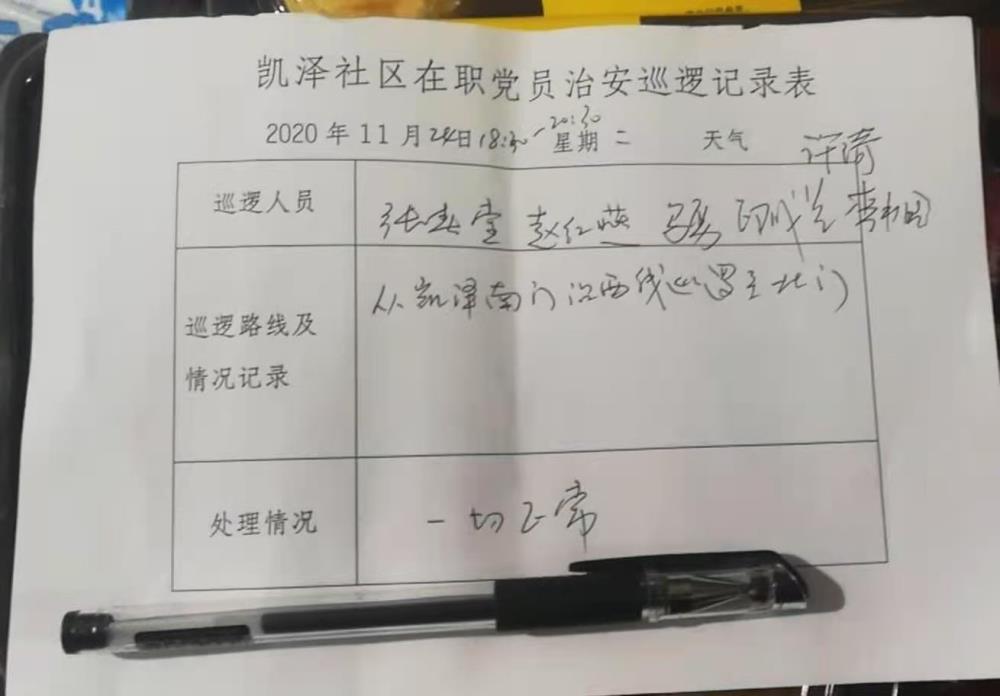 凯泽社区在职党员治安巡逻记录表
2020年11月24日18:30-20:30 星期二 天气
许琦
巡逻人员 张春堂 赵红燕 马勇
巡逻路线及情况记录 从凯泽南门沿西线巡逻至北门
处理情况 一切正常